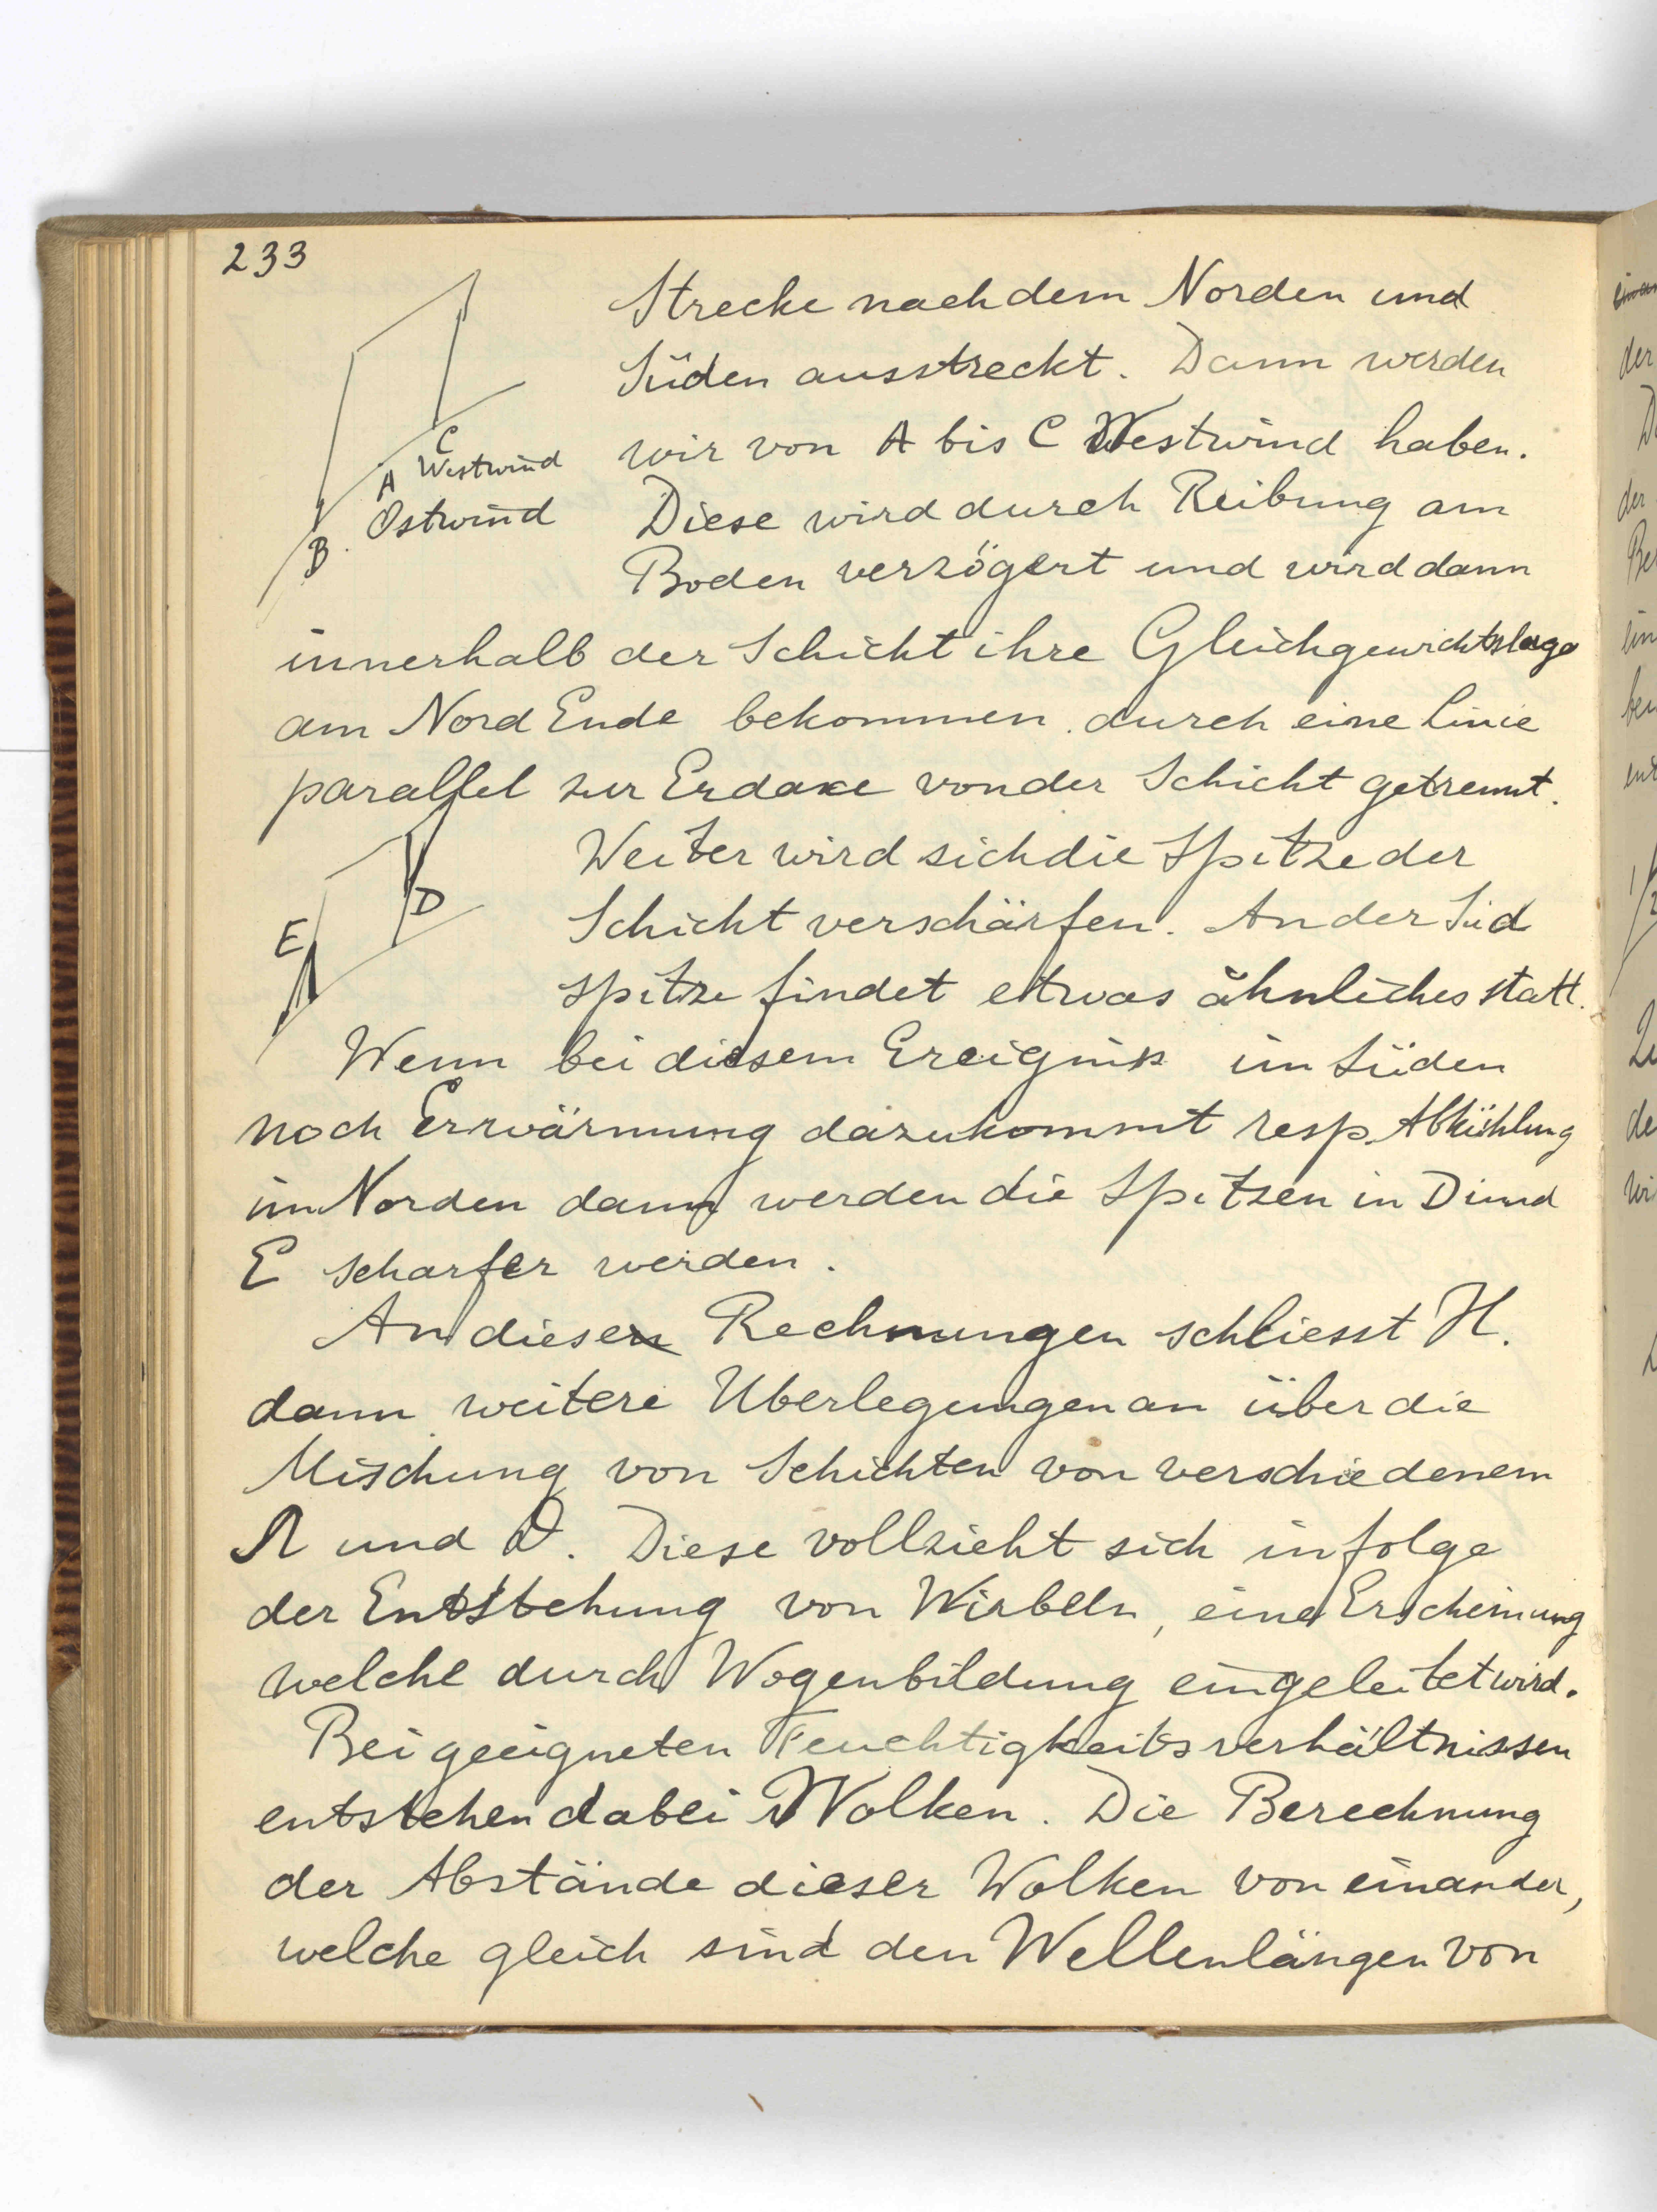 233
Strecke nach dem Norden und
Süden ausstreckt. Dann werden
wir von A bis C Westwind haben.
C
A Westwind
Ostwind
B
Diese wird durch Reibung am
Boden verzögert und wird dann
innerhalb der Schicht ihre Gleichgewichtslage
am Nord Ende bekommen durch eine Linie
parallel zur Erdaxe von der Schicht getrennt.
D
E
Weiter wird sich die Spitze der
Schicht verschärfen. An der Süd
spitze findet etwas ähnliches statt.
Wenn bei diesem Ereignis im Süden
noch Erwärmung dazukommt resp. Abkühlung
im Norden dann werden die Spitzen in D und
E scharfer werden.
An diese Rechnungen schliesst H.
dann weitere Uberlegungen an über die
Mischung von Schichten von verschiedenem
Ω und ϑ. Diese vollzieht sich infolge
der Entstehung von Wirbeln, eine Erscheinung
welche durch Wogenbildung eingeleitet wird.
Bei geeigneten Feuchtigkeitsverhältnissen
entstehen dabei Wolken. Die Berechnung
der Abstände dieser Wolken von einander,
welche gleich sind den Wellenlängen von